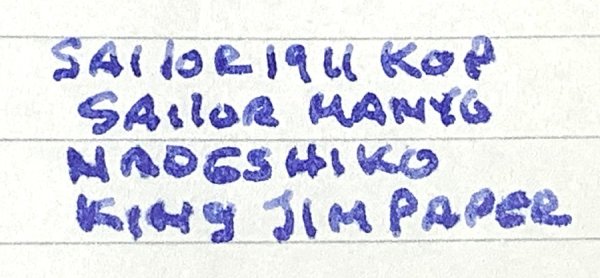 SAILOR 1911 KOP
SAILOR MANYO
NADESHIKO
KING JIM PAPER